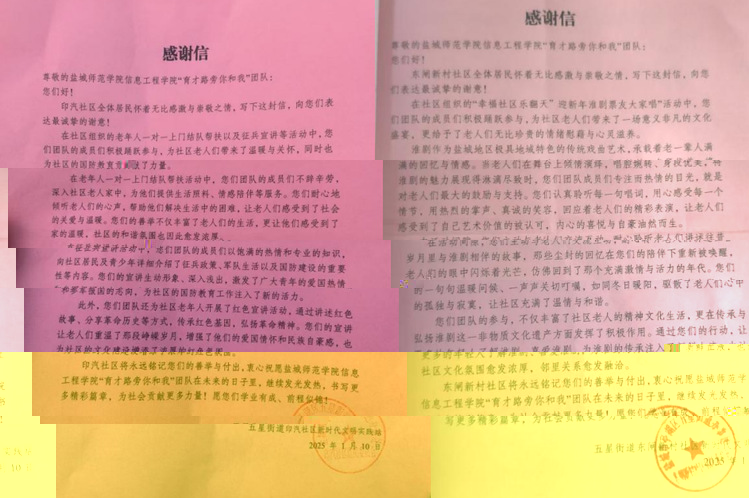 感谢信
尊敬的盐城师范学院信息工程学院“育才路旁你和我”团队：
您们好！
印汽社区全体居民怀着无比感激与崇敬之情，写下这封信，向您们表
达最诚挚的谢意！
在社区组织的老年人一对一上门结队帮扶以及征兵宣讲等活动中，您
们团队的成员们积极踊跃参与，为社区老人们带来了温暖与关怀，同时也
为社区的国防教育贡献了力量。
在老年人一对一上门结队帮扶活动中，您们团队的成员们不辞辛劳，
深入社区老人家中，为他们提供生活照料、情感陪伴等服务。您们耐心地
倾听老人们的心声，帮助他们解决生活中的困难，让老人们感受到了社会
的关爱与温暖。您们的善举不仅丰富了老人们的生活，更让他们感受到了
家的温暖，社区的和谐氛围也因此愈发浓厚。
在征兵宣讲活动中，您们团队的成员们以饱满的热情和专业的知识，
向社区居民及青少年详细介绍了征兵政策、军队生活以及国防建设的重要
性等内容。您们的宣讲生动形象、深入浅出，激发了广大青年的爱国热情
和参军报国的志向，为社区的国防教育工作注入了新的活力。
此外，您们团队还为社区老年人开展了红色宣讲活动，通过讲述红色
故事、分享革命历史等方式，传承红色基因，弘扬革命精神。您们的宣讲
让老人们重温了那段峥嵘岁月，增强了他们的爱国情怀和民族自豪感，也
印汽社区将永远铭记您们的善举与付出，衷心祝愿盐城师范学院信息
工程学院“育才路旁你和我”团队在未来的日子里，继续发光发热，书写更
多精彩篇章，为社会贡献更多力量！愿您们学业有成、前程似锦！
五星街道印汽社区新时代文明实践站
2025 年 1 月 10 日
感谢信
尊敬的盐城师范学院信息工程学院“育才路旁你和我”团队：
您们好！
东闸新村社区全体居民怀着无比感激与崇敬之情，写下这封信，向您
们表达最诚挚的谢意！
在社区组织的“幸福社区乐翻天”迎新年淮剧票友大家唱”活动中，您
们团队的成员们积极踊跃参与，为社区老人们带来了一场意义非凡的文化
盛宴，更给予了老人们无比珍贵的情绪慰藉与心灵滋养。
淮剧作为盐城地区极具地域特色的传统戏曲艺术，承载着老一辈人满
满的回忆与情感。当老人们在舞台上倾情演绎，唱腔婉转、身段优美，将
淮剧的魅力展现得淋漓尽致时，您们团队成员们专注而热情的目光，就是
对老人们最大的鼓励与支持。您们认真聆听每一句唱词，用心感受每一个
情节，用热烈的掌声、真诚的笑容，回应着老人们的精彩表演，让老人们
感受到了自己艺术价值的被认可，内心的喜悦与自豪油然而生。
岁月里与淮剧相伴的故事，那些尘封的回忆在您们的陪伴下重新被唤醒，
老人们的眼中闪烁着光芒，仿佛回到了那个充满激情与活力的年代。您们
的一句句温暖问候、一声声关切叮嘱，如同冬日暖阳，驱散了老人们心中
的孤独与寂寞，让社区充满了温情与和谐。
您们团队的参与，不仅丰富了社区老人的精神文化生活，更在传承与
弘扬淮剧这一非物质文化遗产方面发挥了积极作用。通过您们的行动，让
社区文化氛围愈发浓厚，邻里关系愈发融洽。
东闸新村社区将永远铭记您们的善举与付出，衷心祝愿盐城师范学院
信息工程学院“育才路旁你和我”团队在未来的日子里，继续发光发热，
书写更多精彩篇章，为社会贡献更多力量！愿您们学业有成、前程似锦
五星街道东闸新村社区
2025 年 1